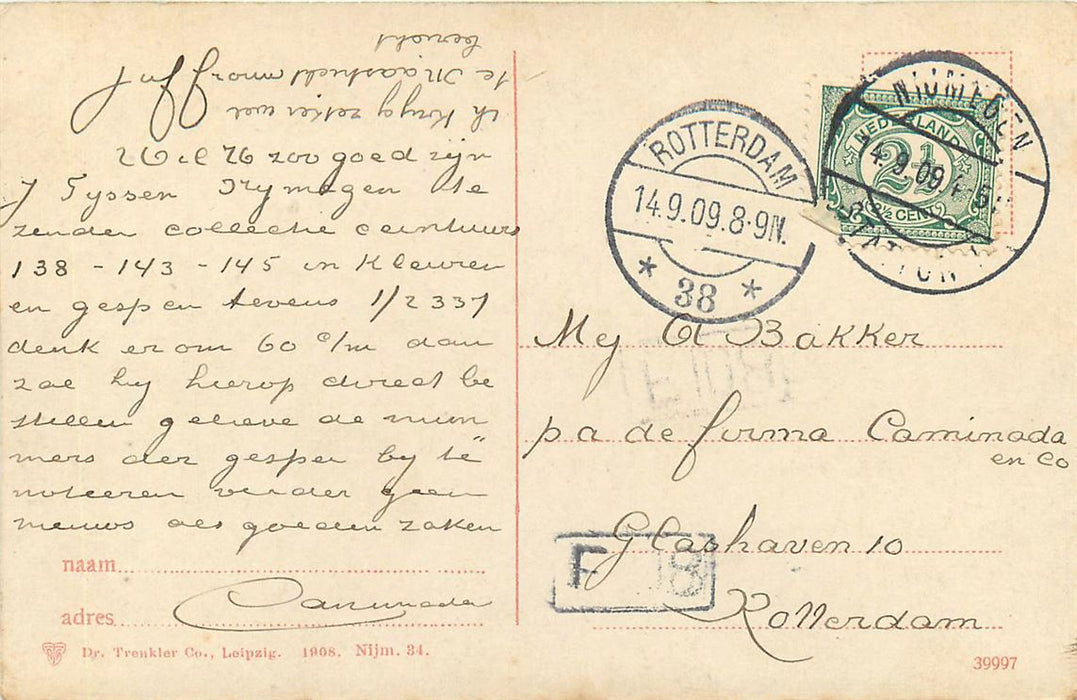 Juffrouw
Wil U zoo goed zijn
J Tyssen Nymegen te
zenden collectie ceintuurs
138 - 143 - 145 in kleuren
en gespen tevens 1/2 337
denk er om 60 c/m dan
zal hy hierop direct be
stellen gelieve de num
mers der gespen by te
noteeren verder geen
nieuws als goeden zaken
Caminada
ik kryg zeker wel
te Maastricht
bericht
naam
adres
Dr. Trenkler Co., Leipzig. 1908. Nijm. 34.
ROTTERDAM
14.9.09.8-9N.
* 38 *
NIJMEGEN
14.9.09.4-5N
STATION
NEDERLAND
2½
2½ CENT
Mej A Bakker
pa de firma Caminada
en Co
Glashaven 10
Rotterdam
F 8
39997